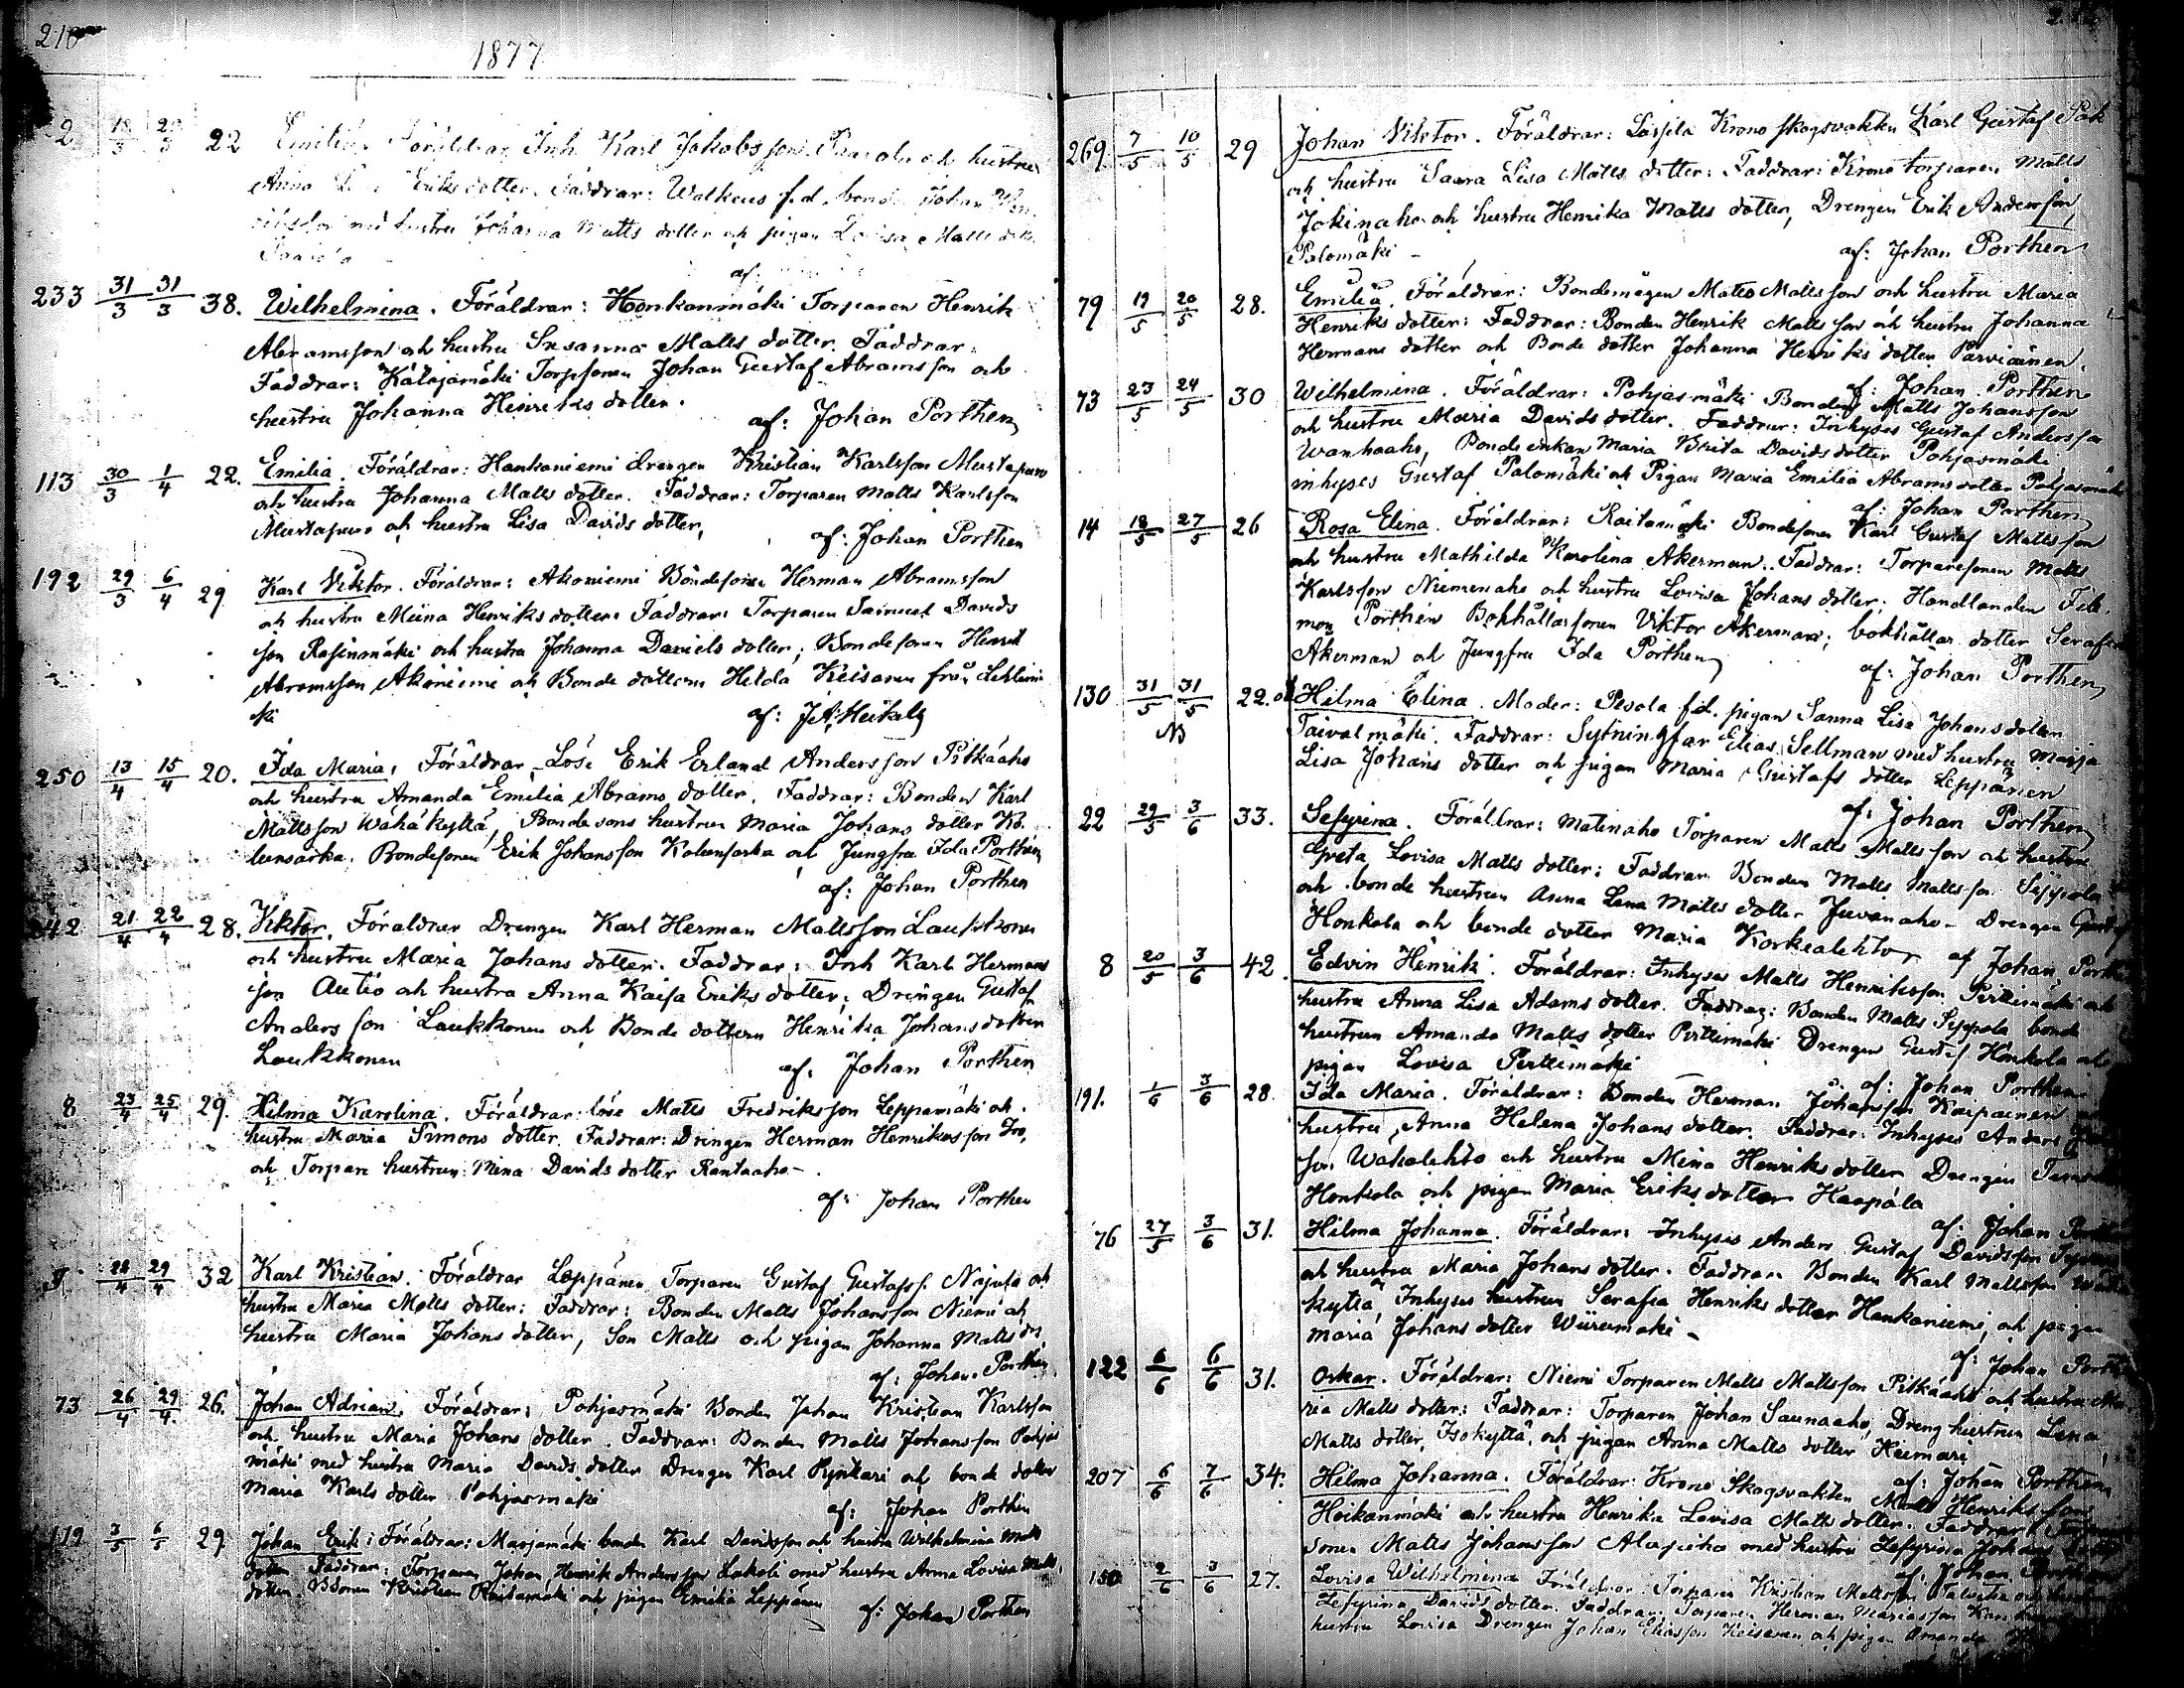 210
1877
2 18/3 20/3 22 Emilia Föräldrar Inh. Karl Jakobsson och hustru
Anna Eriksdotter. Faddrar: f.d. bonde Johan
med hustru Johanna Matts dotter och pigan Lovisa Matts dotter
af:
233 31/3 31/3 38. Wilhelmina. Föräldrar: Honkanmäki Torparen Henrik
Abramsson och hustru Susanna Matts dotter. Faddrar:
Faddrar: Kätajamäki Torpsonen Johan Gustaf Abramsson och
hustru Johanna Henriks dotter.
af: Johan Porthen
113 30/3 1/4 22. Emilia. Föräldrar: Hankaniemi drengen Kristian Karlsson Mustapuro
och hustru Johanna Matts dotter. Faddrar: Torparen Matts Karlsson
Mustapuro och hustru Lisa Davids dotter,
af: Johan Porthen
192 29/3 6/4 29 Karl Viktor. Föräldrar: Akoniemi Bondesonen Herman Abramsson
och hustru Meina Henriks dotter: Faddrar: Torparen Samuel Davids
son Rasinmäki och hustru Johanna Daniels dotter; Bondesonen Henrik
Abramsson Akoniemi och Bonde dottern Hilda Keisanen från Lehtimä
ki
af: J A Heikel
250 13/4 15/4 20. Ida Maria, Föräldrar Löse Erik Erland Andersson Pitkäaho
och hustru Amanda Emilia Abrams dotter. Faddrar: Bonden Karl
Mattsson Wähäkyttä, Bondesons hustrun Maria Johans dotter Ko
lunsarka. Bondesonen Erik Johansson Kolunsarka och Jungfru Ida Porthen
af: Johan Porthen
242 21/4 22/4 28. Viktor. Föräldrar Drengen Karl Herman Mattsson Laukkonen
och hustru Maria Johans dotter. Faddrar: Inh Karl Hermans
son Autio och hustru Anna Kaisa Eriks dotter; Drengen Gustaf
Andersson Laukkonen och Bonde dottern Henrika Johans dotter
Laukkonen
af: Johan Porthen
8 23/4 25/4 29. Hilma Karolina. Föräldrar: löse Matts Fredriksson Leppämäki och
hustru Maria Simons dotter. Faddrar: Drengen Herman Henriksson
och Torpare hustrun: Mina Davids dotter Rantaaho.
af: Johan Porthen
28/4 29/4 32 Karl Kristian. Föräldrar Leppänen Torparen Gustaf Gustafss. och
hustru Maria Matts dotter: Faddrar: Bonden Matts Johansson Niemi och
hustru Maria Johans dotter, Son Matts och pigan Johanna Matts dr,
af: Johan Porthen
73 26/4 29/4. 26. Johan Adrian. Föräldrar; Pohjasmäki Bonden Johan Kristian Karlsson
och hustru Maria Johans dotter. Faddrar: Bonden Matts Johansson Pohjas
mäki med hustru Maria Davids dotter Drengen Karl och bonde dotter
Maria Karls dotter Pohjasmäki
af: Johan Porthen
119 3/5 6/5 29 Johan Erik: Föräldrar: Marjamäki bonden Karl Davidsson och hustru Wilhelmina Matts
dotter Faddrar: Torparen Johan Henrik Andersson med hustru Anna Lovisa Matts
dotter Bsonen Kristian Raitamäki och pigan Emilia Leppänen
af: Johan Porthen
269 7/5 10/5 29 Johan Viktor. Föräldrar: Lassila Krono skogsvakten Karl Gustaf
och hustru Saara Lisa Matts dotter: Faddrar: Krono torparen Matts
Jokinaho och hustru Henrika Matts dotter, Drengen Erik Andersson
Palomäki
af: Johan Porthen
79 19/5 20/5 28. Emilia. Föräldrar: Bondemågen Matts Mattsson och hustru Maria
Henriks dotter: Faddrar: Bonden Henrik Mattsson och hustru Johanna
Hermans dotter och Bonde dotter Johanna Henriks dotter Parviainen.
af: Johan Porthen
73 23/5 24/5 30 Wilhelmina. Föräldrar: Pohjasmäki Bonden Matts Johansson
och hustru Maria Davids dotter. Faddrar: Inhyses Gustaf Andersson
Wanhaaho, Bonde enkan Maria Brita Davids dotter Pohjasmäki
inhyses Gustaf Palomäki och Pigan Maria Emilia Abrams dotter Pohjasmäki
af: Johan Porthen
14 18/5 27/5 26 Rosa Elina. Föräldrar: Raitamäki Bondesonen Karl Gustaf Mattsson
och hustru Mathilda Karolina Åkerman. Faddrar: Torparesonen Matts
Karlsson Niemenaho och hustru Lovisa Johans dotter; Handlanden File
mon Porthen Bokhållarsonen Viktor Åkerman; bokhållar dotter Serafia
Åkerman och Jungfru Ida Porthen
af: Johan Porthen
130 31/5 31/5 22. oä Hilma Elina. Moder: Pesola f.d. pigan Sanna Lisa Johansdotter
NB Taivalmäki. Faddrar: Sytningfar Elias Sellman med hustru Maija
Lisa Johans dotter och pigan Maria Gustafs dotter Leppänen
af: Johan Porthen
22 29/5 3/6 33. Sefyrina. Föräldrar: Matinaho Torparen Matts Mattsson och hustru
Greta Lovisa Matts dotter; Faddrar Bonden Matts Mattsson Syppola
och bonde hustrun Anna Lena Matts dotter Juvanaho - Drengen
Honkola och bonde dotter Maria Korkealehto
af Johan
8 20/5 3/6 42. Edvin Henrik. Föräldrar: Inhyses Matts Henriksson Perttimäki och
hustru Anna Lisa Adams dotter. Faddrar: Bonden Matts Syppola bonde
hustrun Amanda Matts dotter Perttimäki Drengen Gustaf Honkola och
pigan Lovisa Perttimäki
af: Johan Porthen
191. 1/6 3/6 28 Ida Maria. Föräldrar: Bonden Herman Johansson Kaipainen
hustru, Anna Helena Johans dotter. Faddrar: Inhyses Anders
son Wahalehto och hustru Mina Henriks dotter Drengen
Honkola och pigan Maria Eriks dotter Haapala
af: Johan
76 27/5 3/6 31. Hilma Johanna. Föräldrar: Inhyses Anders Gustaf Davidsson
och hustru Maria Johans dotter. Faddrar Bonden Karl Mattsson
kyttä, Inhyses hustrun Serafia Henriks dotter Hankaniemi, och pigan
Maria Johans dotter
af: Johan
122 6/6 6/6 31. Oskar. Föräldrar: Niemi Torparen Matts Mattsson Pitkäaho och hustru Ma
ria Matts dotter: Faddrar: Torparen Johan Saunaaho, Dreng hustrun Lena
Matts dotter, Isokyttä, och pigan Anna Matts dotter
af: Johan Porthen
207 6/6 7/6 34. Hilma Johanna. Föräldrar: Krono Skogsvakten Matts Henriksson
Hoikanmäki och hustru Henrika Lovisa Matts dotter. Faddrar:
sonen Matts Johansson med hustru Zefyrina Johans
af: Johan
150 2/6 3/6 27. Lovisa Wilhelmina Föräldrar: Torparen Kristian Mattsson
Zefyrina Davids dotter. Faddrar: Torparen Herman
hustru Lovisa Drengen Johan Eliasson Keisanen och pigan Amanda